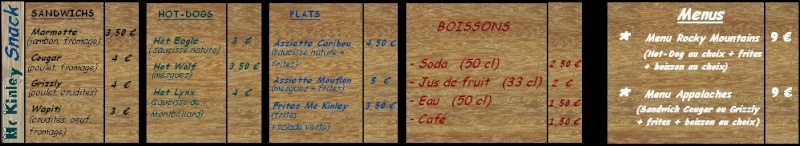 Mc Kinley Snack
SANDWICHS
Marmotte 3,50 €
(jambon, fromage)
Cougar 4 €
(poulet, fromage)
Grizzly 4 €
(poulet, crudités)
Wapiti 3 €
(crudités, oeuf,
fromage)
HOT-DOGS
Hot Eagle 3 €
(saucisse nature)
Hot Wolf 3,50 €
(merguez)
Hot Lynx 4 €
(saucisse de
Montbéliard)
PLATS
Assiette Caribou 4,50 €
(saucisse nature +
frites)
Assiette Mouflon 5 €
(merguez + frites)
Frites Mc Kinley 3,50 €
(frites
+salade verte)
BOISSONS
- Soda (50 cl) 2,50 €
- Jus de fruit (33 cl) 2 €
- Eau (50 cl) 1,50 €
- Café 1,50 €
Menus
* Menu Rocky Mountains 9 €
(Hot-Dog au choix + frites
+ boisson au choix)
* Menu Appalaches 9 €
(Sandwich Cougar ou Grizzly
+ frites + boisson au choix)